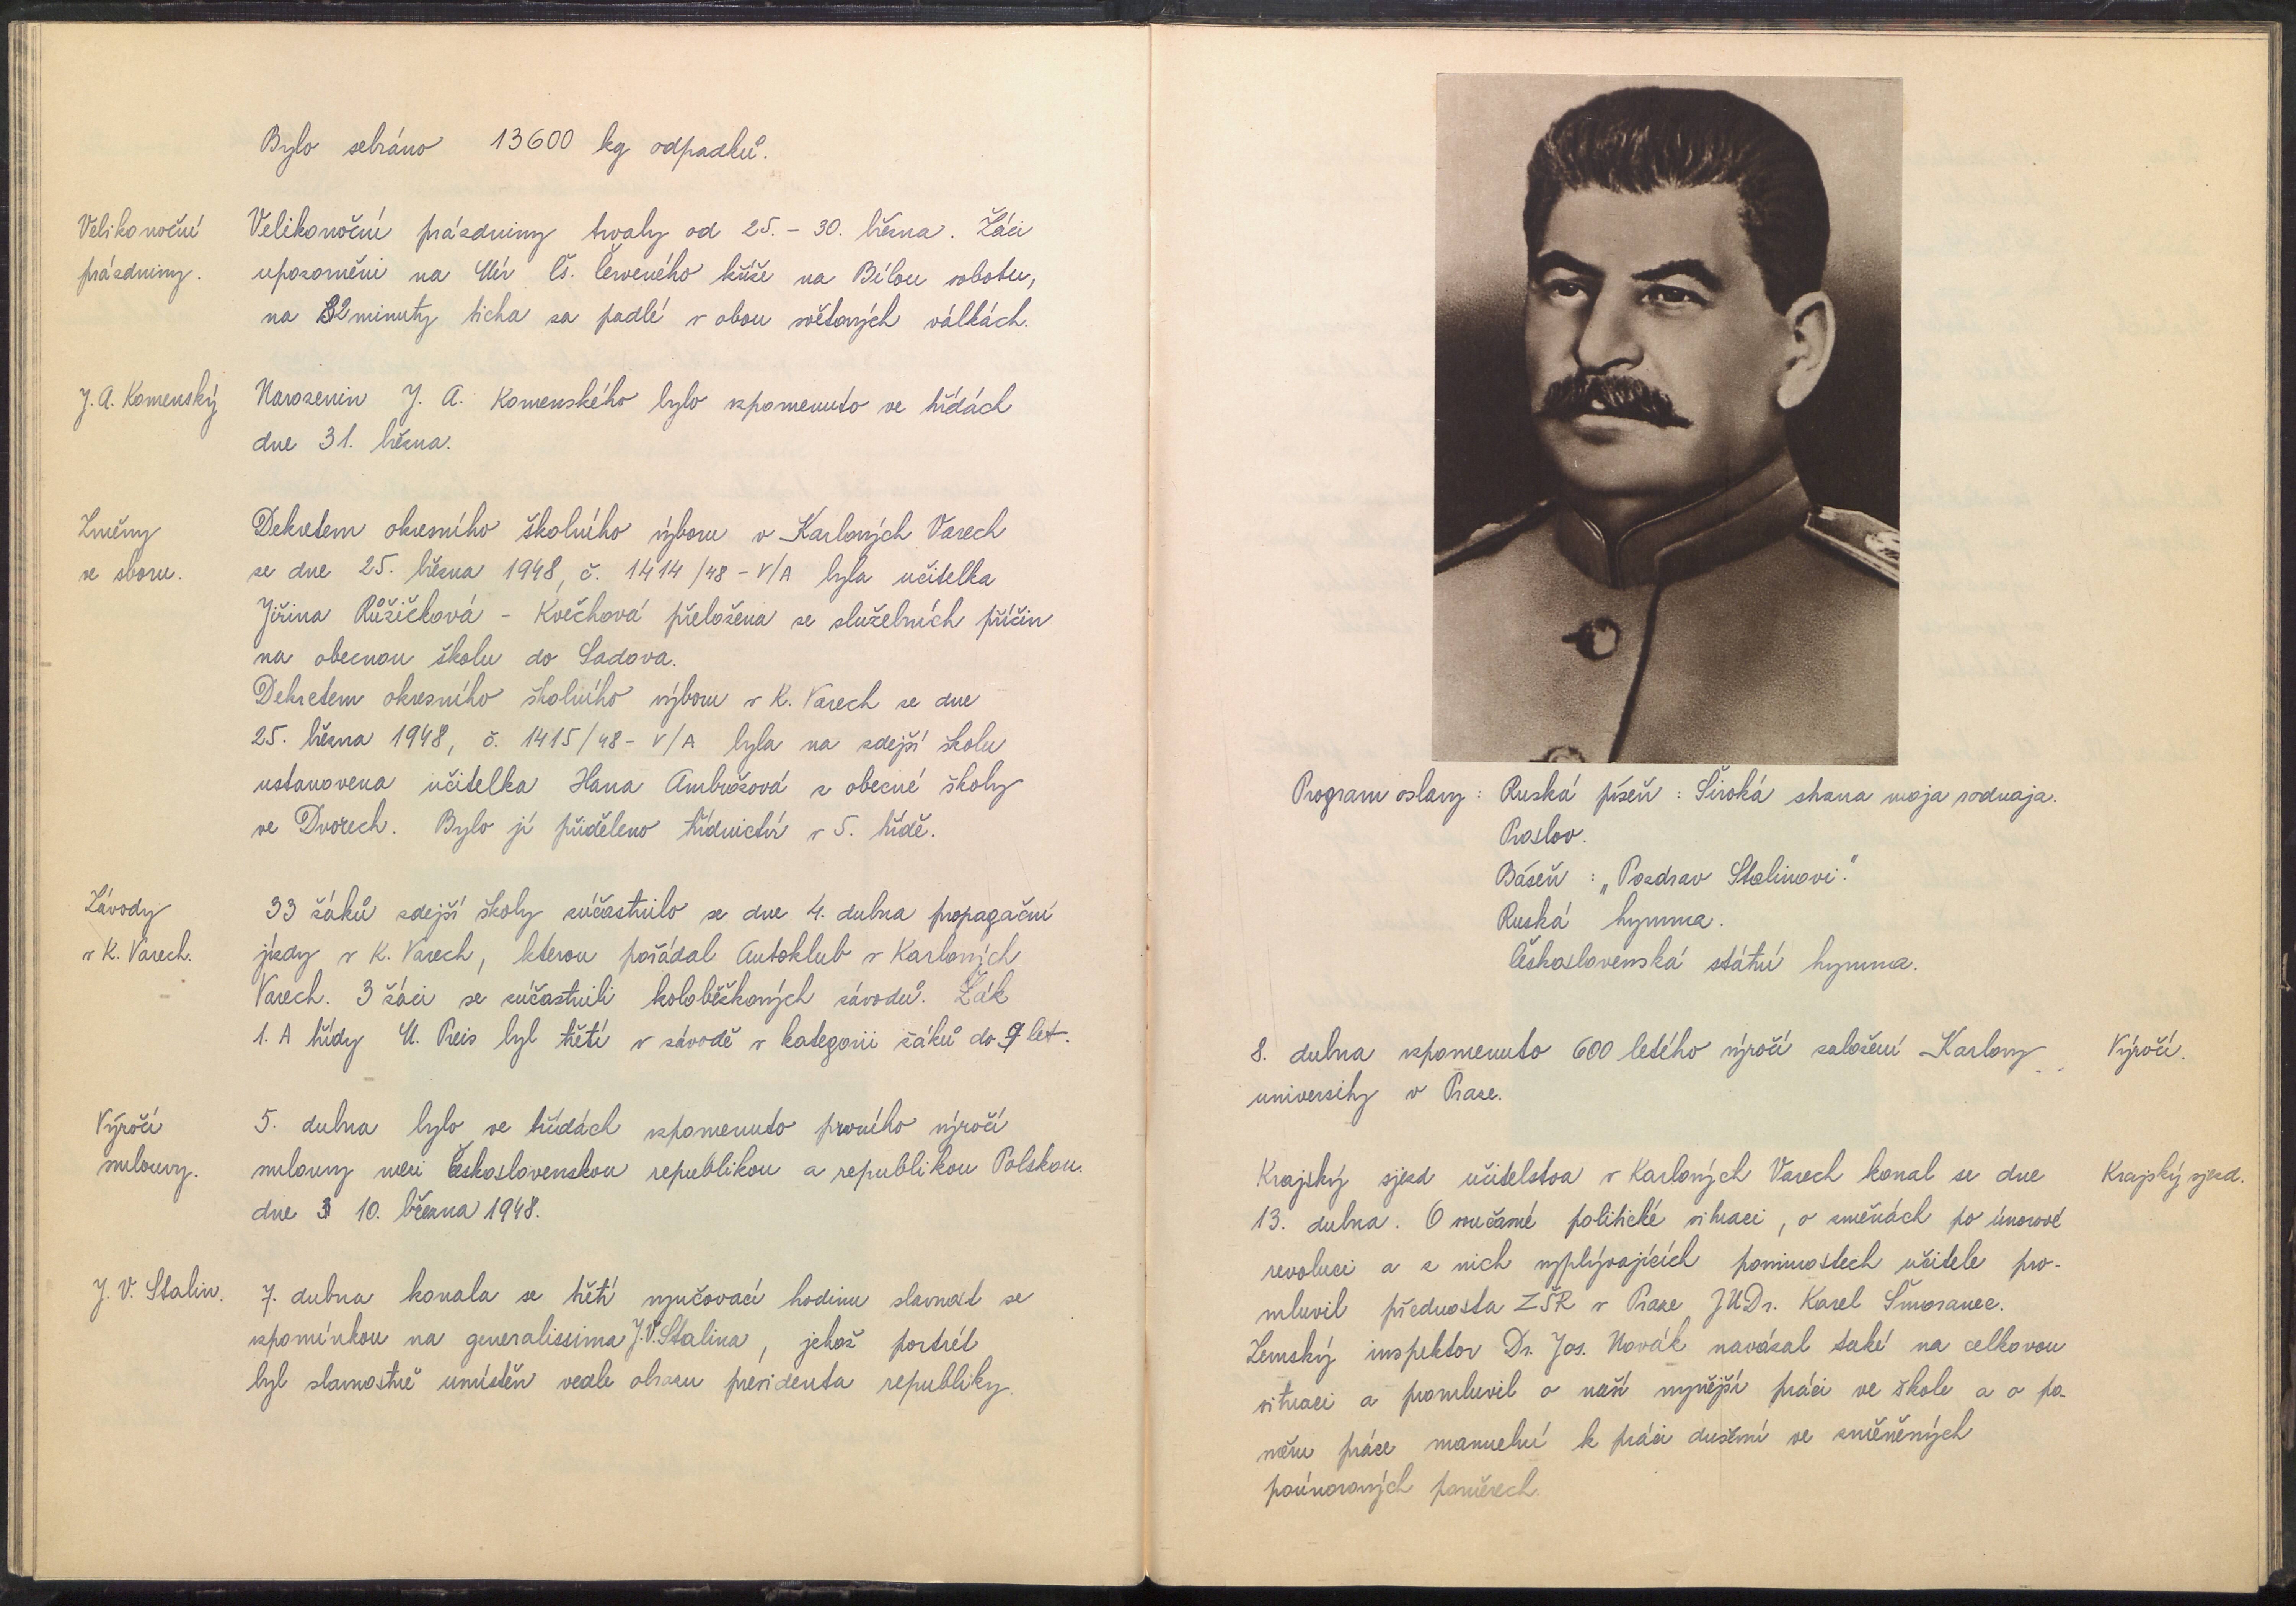 Bylo sebráno 13600 kg odpadků.
Velikonoční
prázdniny.
Velikonoční prázdniny trvaly od 25. – 30. března. Žáci
upozorněni na Mír Čs. Červeného kříže na Bílou sobotu,
na 2 minuty ticha za padlé v obou světových válkách.
J. A. Komenský
Narozenin J. A. Komenského bylo vzpomenuto ve třídách
dne 31. března.
Změny
ve sboru.
Dekretem okresního školního výboru v Karlových Varech
ze dne 25. března 1948, č. 1414/48 – V/A byla učitelka
Jiřina Růžičková – Kvěchová přeložena ze služebních příčin
na obecnou školu do Sadova.
Dekretem okresního školního výboru v K. Varech ze dne
25. března 1948, č. 1415/48 – V/A byla na zdejší školu
ustanovena učitelka Hana Ambrožová z obecné školy
ve Dvorech. Bylo jí přiděleno třídnictví v 5. třídě.
Závody
v K. Varech.
33 žáků zdejší školy zúčastnilo se dne 4. dubna propagační
jízdy v K. Varech, kterou pořádal Autoklub v Karlových
Varech. 3 žáci se zúčastnili koloběžkových závodů. Žák
1. A třídy M. Preis byl třetí v závodě v kategorii žáků do 9 let.
Výročí
smlouvy.
5. dubna bylo ve třídách vzpomenuto prvního výročí
smlouvy mezi Československou republikou a republikou Polskou.
dne 10. března 1948.
J. V. Stalin.
7. dubna konala se třetí vyučovací hodinu slavnost se
vzpomínkou na generalissima J. V. Stalina, jehož portrét
byl slavnostně umístěn vedle obrazu presidenta republiky.
Program oslavy : Ruská píseň : Široká strana moja rodnaja.
Proslov.
Báseň : „Pozdrav Stalinovi."
Ruská hymna.
Československá státní hymna.
8. dubna vzpomenuto 600 letého výročí založení Karlovy
university v Praze.
Výročí.
Krajský sjezd učitelstva v Karlových Varech konal se dne
13. dubna. O současné politické situaci, o změnách po únorové
revoluci a z nich vyplývajících povinnostech učitele pro-
mluvil přednosta ZŠR v Praze JUDr. Karel Šmoranec.
Zemský inspektor Dr. Jos. Novák navázal také na celkovou
situaci a promluvil o naší nynější práci ve škole a o po-
měru práce manuelní k práci duševní ve změněných
poúnorových poměrech.
Krajský sjezd.